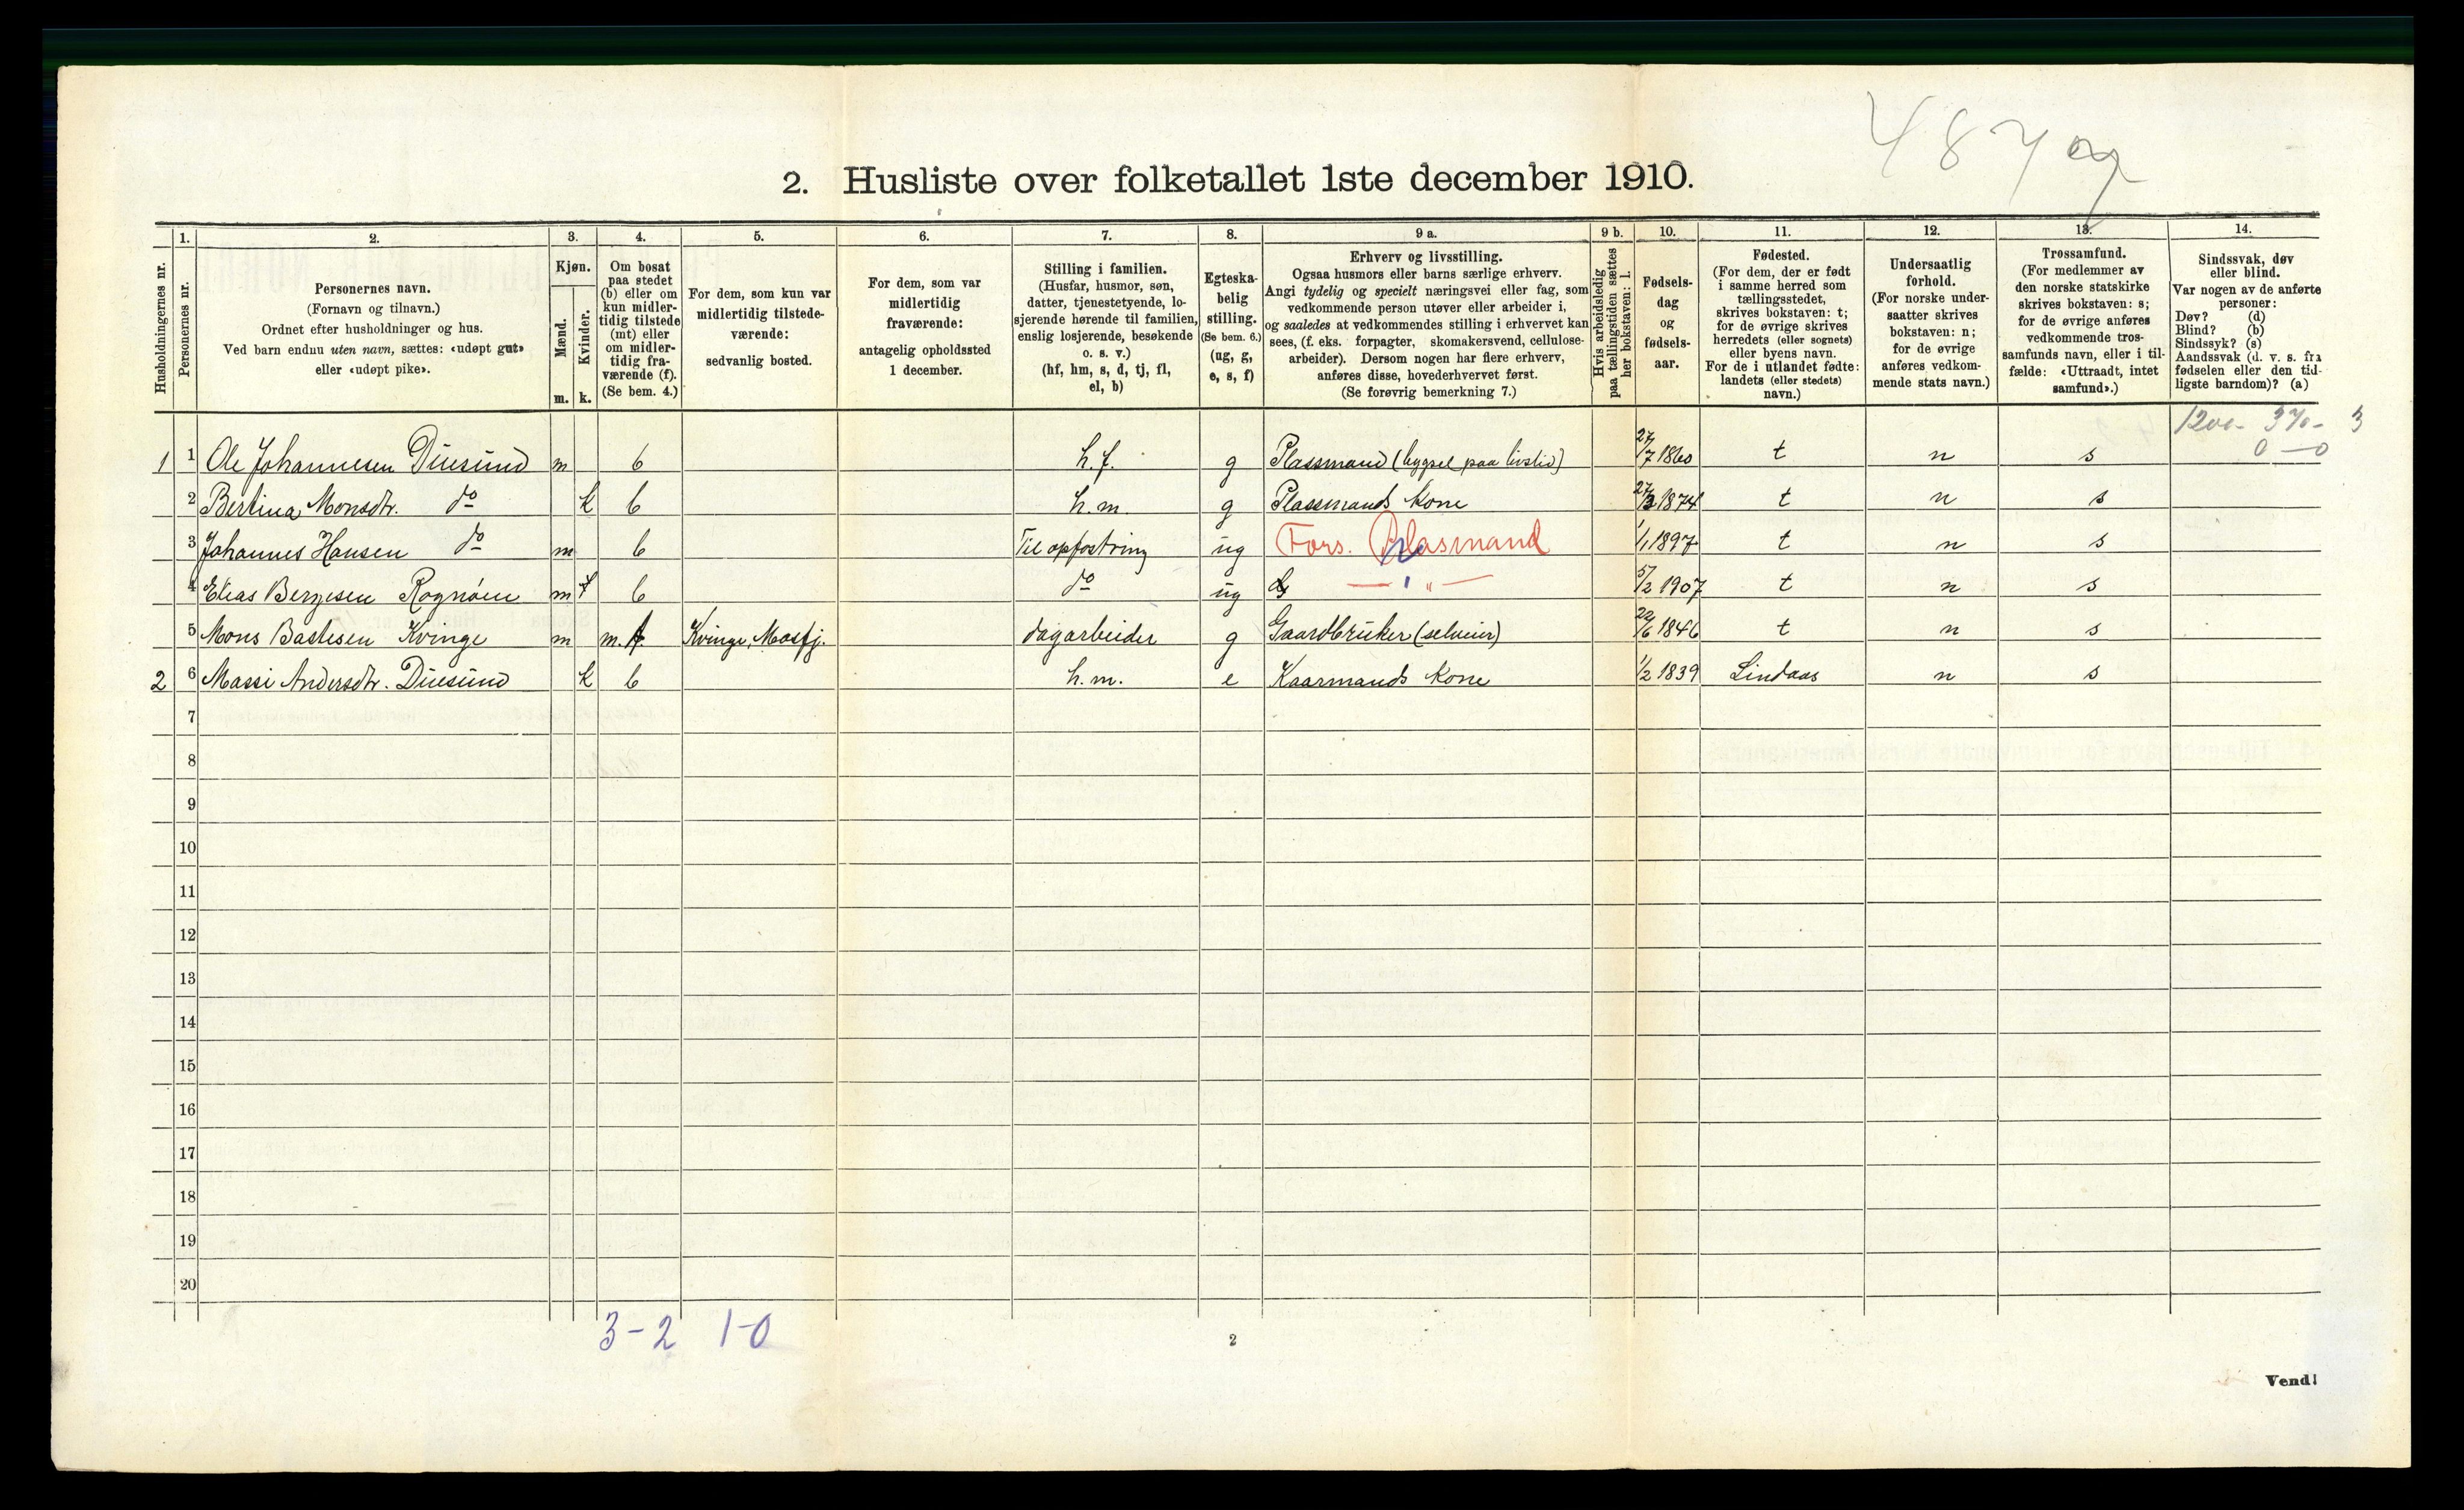 487
2. Husliste over folketallet 1ste december 1910.
Husholdningernes nr.
1.
Personernes nr.
2.
Personernes navn.
(Fornavn og tilnavn.)
Ordnet efter husholdninger og hus.
Ved barn endnu uten navn, sættes: «udøpt gut»
eller «udøpt pike».
3.
Kjøn.
Mænd.
Kvinder.
m. k.
4.
Om bosat
paa stedet
(b) eller om
kun midler-
tidig tilstede
(mt) eller
om midler-
tidig fra-
værende (f).
(Se bem. 4.)
5.
For dem, som kun var
midlertidig tilstede-
værende:
sedvanlig bosted.
6.
For dem, som var
midlertidig
fraværende:
antagelig opholdssted
1 december.
7.
Stilling i familien.
(Husfar, husmor, søn,
datter, tjenestetyende, lo-
sjerende hørende til familien,
enslig losjerende, besøkende
o. s. v.)
(hf, hm, s, d, tj, fl,
el, b)
8.
Egteska-
belig
stilling.
(Se bem. 6.)
(ug, g,
e, s, f)
9 a.
Erhverv og livsstilling.
Ogsaa husmors eller barns særlige erhverv.
Angi tydelig og specielt næringsvei eller fag, som
vedkommende person utøver eller arbeider i,
og saaledes at vedkommendes stilling i erhvervet kan
sees, (f. eks. forpagter, skomakersvend, cellulose-
arbeider). Dersom nogen har flere erhverv,
anføres disse, hovederhvervet først.
(Se forøvrig bemerkning 7.)
9 b.
Hvis arbeidsledig
paa tællingstiden sættes
her bokstaven: l.
10.
Fødsels-
dag
og
fødsels-
aar.
11.
Fødested.
(For dem, der er født
i samme herred som
tællingsstedet,
skrives bokstaven: t;
for de øvrige skrives
herredets (eller sognets)
eller byens navn.
For de i utlandet fødte:
landets (eller stedets)
navn.)
12.
Undersaatlig
forhold.
(For norske under-
saatter skrives
bokstaven: n;
for de øvrige
anføres vedkom-
mende stats navn.)
13.
Trossamfund.
(For medlemmer av
den norske statskirke
skrives bokstaven: s;
for de øvrige anføres
vedkommende tros-
samfunds navn, eller i til-
fælde: «Uttraadt, intet
samfund».)
14.
Sindssvak, døv
eller blind.
Var nogen av de anførte
personer:
Døv? (d)
Blind? (b)
Sindssyk? (s)
Aandssvak (d. v. s. fra
fødselen eller den tid-
ligste barndom)? (a)
1200 - 370 - 3
0 - 0
1 1 Ole Johannesen Diiesund m b h.f. g Plassmand (bygsel paa livstid) 27/7 1860 t n s
2 Bertina Monsdtr. do k b h.m. g Plassmands Kone 27/3 1874 t n s
3 Johannes Hansen do m b Til opfostring ug Fors. Plasmand 1/1 1897 t n s
4 Elias Bergesen Rognøen m b do ug — " — 5/2 1907 t n s
5 Mons Bastesen Kvinge m m.t. Kvinge, Masfj. dagarbeider g Gaardbruker (selveier) 22/6 1846 t n s
2 6 Massi Andersdtr. Diiesund k b h.m. e Kaarmands Kone 1/2 1839 Lindaas n s
7
8
9
10
11
12
13
14
15
16
17
18
19
20
3-2 1-0
2
Vend!